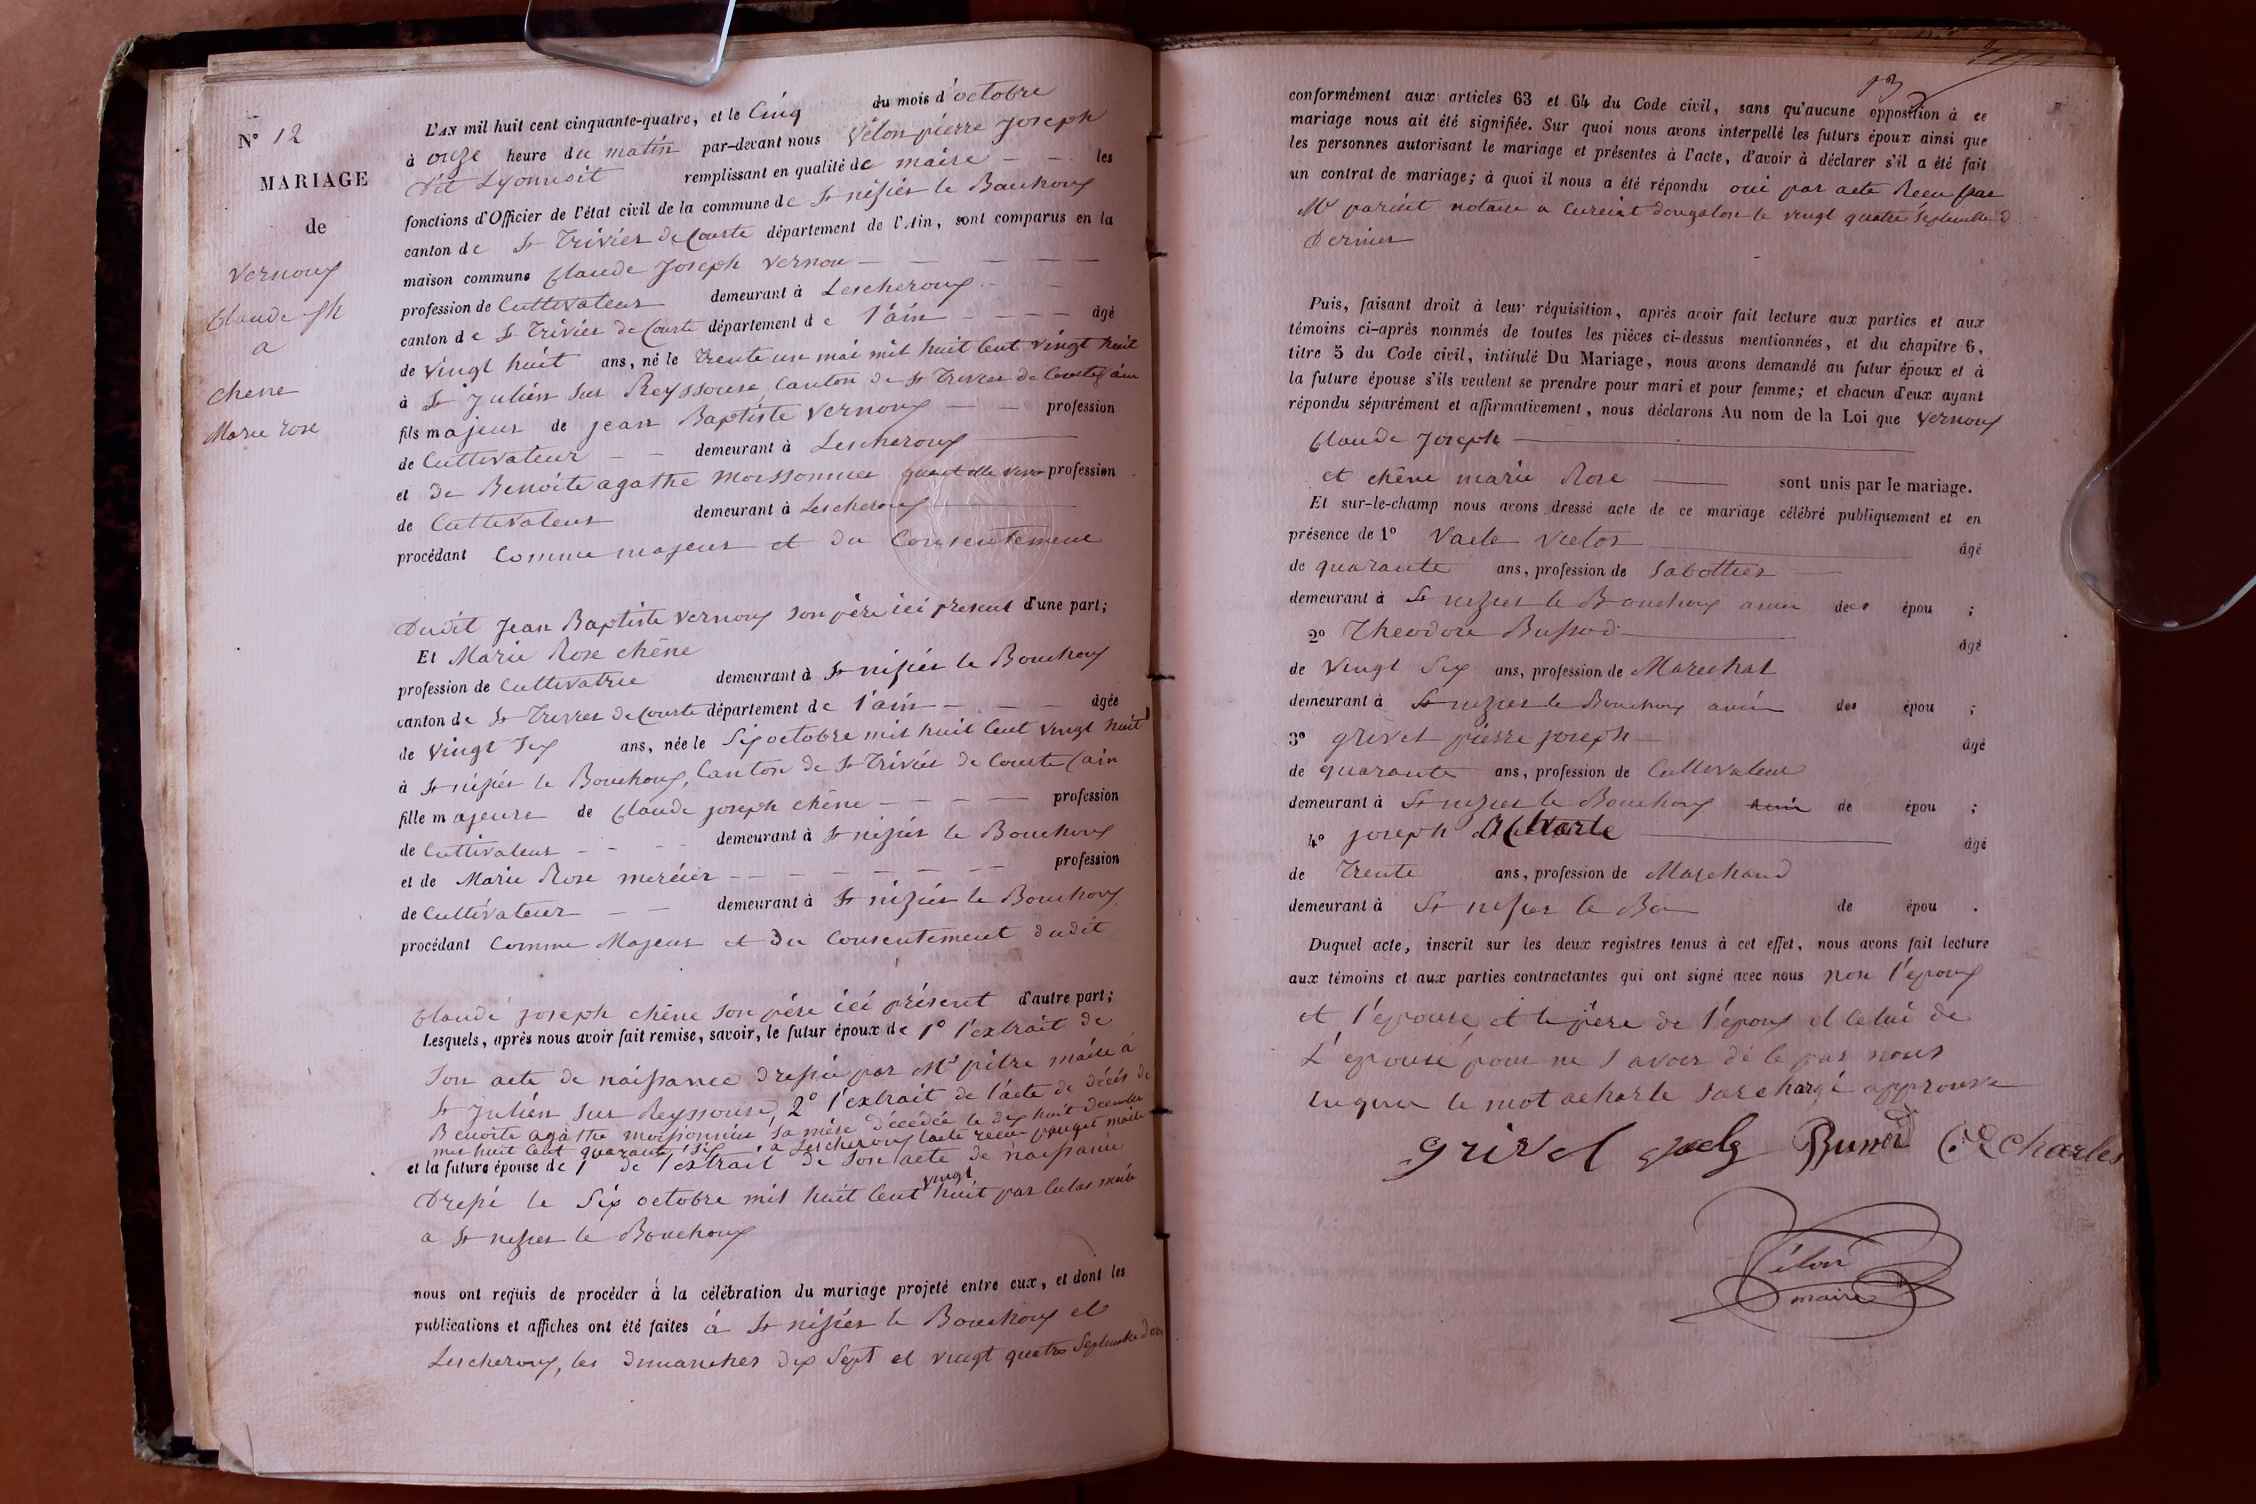 N° 12
MARIAGE
de
Vernoux
Claude Jh
a
chene
Marie rose
L'AN mil huit cent cinquante-quatre, et le Cinq du mois d'octobre
à onze heure du matin par-devant nous Vélon pierre Joseph
remplissant en qualité de maire — — les
fonctions d'Officier de l'état civil de la commune de St nisier le Bouchoux
canton de St Trivier de Courte département de l'Ain, sont comparus en la
maison commune Claude Joseph Vernou — — — — —
profession de Cultivateur demeurant à Lescheroux — —
canton de St Trivier de Courte département de l'ain — — — — âgé
de vingt huit ans, né le trente un mai mil huit Cent vingt huit
à St Julien sur Reyssouse, Canton de St Trivier de Courte, ain
fils majeur de jean Baptiste Vernoux — — profession
de Cultivateur — — demeurant à Lescheroux —
et de Benoite agathe moissonnier quand elle vivait profession
de Cultivateur demeurant à Lescheroux —
procédant Comme majeur et du Consentement
Dudit Jean Baptiste Vernoux son père ici présent d'une part;
Et Marie Rose chêne
profession de Cultivatrice demeurant à St nisier le Bouchoux
canton de St Trivier de Courte département de l'ain — — — âgée
de vingt six ans, née le six octobre mil huit Cent vingt huit
à St nisier le Bouchoux, Canton de St Trivier de Courte (ain
fille majeure de Claude joseph chêne — — — — profession
de Cultivateur — — — demeurant à St nisier le Bouchoux
et de Marie Rose mercier — — — — — — — profession
de Cultivateur — — demeurant à St nisier le Bouchoux
procédant Comme Majeur et du Consentement dudit
Claude joseph chêne son père ici présent d'autre part;
Lesquels, après nous avoir fait remise, savoir, le futur époux de 1° l'extrait de
son acte de naissance dressé par Mr pitre maire à
St Julien sur Reyssouse, 2° l'extrait de l'acte de décès de
Benoite agathe moissonnier sa mère décédée le dix huit décembre
mil huit Cent quarante six, à Lescheroux l'acte reçu pouget maire
et la future épouse de 1° de l'extrait de son acte de naissance
Dressé le six octobre mil huit Cent vingt huit par maire
a St nisier le Bouchoux
nous ont requis de procéder à la célébration du mariage projeté entre eux, et dont les
publications et affiches ont été faites à St nisier le Bouchoux et
Lescheroux, les dimanches dix sept et vingt quatre septembre der
13
conformément aux articles 63 et 64 du Code civil, sans qu'aucune opposition à ce
mariage nous ait été signifiée. Sur quoi nous avons interpellé les futurs époux ainsi que
les personnes autorisant le mariage et présentes à l'acte, d'avoir à déclarer s'il a été fait
un contrat de mariage; à quoi il nous a été répondu oui par acte Reçu par
Me notaire a Curciat dongalon le vingt quatre septembre d
Dernier
Puis, faisant droit à leur réquisition, après avoir fait lecture aux parties et aux
témoins ci-après nommés de toutes les pièces ci-dessus mentionnées, et du chapitre 6,
titre 5 du Code civil, intitulé Du Mariage, nous avons demandé au futur époux et à
la future épouse s'ils veulent se prendre pour mari et pour femme; et chacun d'eux ayant
répondu séparément et affirmativement, nous déclarons Au nom de la Loi que Vernoux
Claude Joseph —
et chêne marie Rose — sont unis par le mariage.
Et sur-le-champ nous avons dressé acte de ce mariage célébré publiquement et en
présence de 1° —  âgé
de quarante ans, profession de Sabottier —
demeurant à St nizier le Bouchoux ami des épou ;
2° Theodore — âgé
de vingt six ans, profession de Marechal
demeurant à St nizier le Bouchoux ami des épou ;
3° grivet pierre joseph — âgé
de quarante ans, profession de Cultivateur
demeurant à St nizier le Bouchoux ami de épou ;
4° joseph — âgé
de Trente ans, profession de Marchand
demeurant à St nisier le Bou de épou .
Duquel acte, inscrit sur les deux registres tenus à cet effet, nous avons fait lecture
aux témoins et aux parties contractantes qui ont signé avec nous non l'époux
et l'épouse et le père de l'époux et Celui de
L'épouse pour ne savoir de le par nous
le mot acharle surchargé approuvé
grivet
charles
Vélon
maire